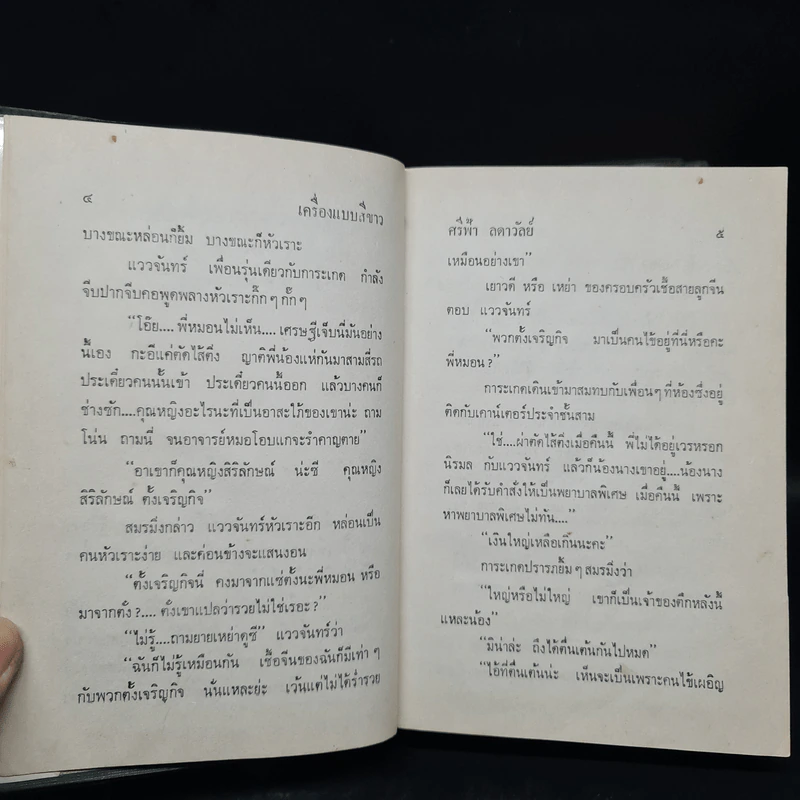 ๔
เครื่องแบบสีขาว
บางขณะหล่อนก็ยิ้ม บางขณะก็หัวเราะ
แววจันทร์ เพื่อนรุ่นเดียวกับการะเกด กำลัง
จีบปากจีบคอพูดพลางหัวเราะกิ๊กๆ กั๊กๆ
“โอ๊ย....พี่หมอนไม่เห็น....เศรษฐีเจ็บนี่มันอย่าง
นี้เอง กะอีแค่ตัดไส้ติ่ง ญาติพี่น้องแห่กันมาสามสี่รถ
ประเดี๋ยวคนนั้นเข้า ประเดี๋ยวคนนี้ออก แล้วบางคนก็
ช่างซัก....คุณหญิงอะไรนะที่เป็นอาสะใภ้ของเขาน่ะ ถาม
โน่น ถามนี่ จนอาจารย์หมอโอบแกจะรำคาญตาย”
“อาเขาก็คุณหญิงสิริลักษณ์ น่ะซี คุณหญิง
สิริลักษณ์ ตั้งเจริญกิจ”
สมรมิ่งกล่าว แววจันทร์หัวเราะอีก หล่อนเป็น
คนหัวเราะง่าย และค่อนข้างจะแสนงอน
“ตั้งเจริญกิจนี่ คงมาจากแซ่ตั้งนะพี่หมอน หรือ
มาจากตั่ง ?.... ตั่งเขาแปลว่ารวยไม่ใช่เรอะ ?”
“ไม่รู้....ถามยายเหย่าดูซี” แววจันทร์ว่า
“ฉันก็ไม่รู้เหมือนกัน เชื้อจีนของฉันก็มีเท่า ๆ
กับพวกตั้งเจริญกิจ นั่นแหละย่ะ เว้นแต่ไม่ได้ร่ำรวย
ศรีฟ้า ลดาวัลย์
๕
เหมือนอย่างเขา”
เยาวดี หรือ เหย่า ของครอบครัวเชื้อสายลูกจีน
ตอบ แววจันทร์
“พวกตั้งเจริญกิจ มาเป็นคนไข้อยู่ที่นี่หรือคะ
พี่หมอน ?”
การะเกดเดินเข้ามาสมทบกับเพื่อนๆ ที่ห้องซึ่งอยู่
ติดกับเคาน์เตอร์ประจำชั้นสาม
“ใช่....ผ่าตัดไส้ติ่งเมื่อคืนนี้ พี่ไม่ได้อยู่เวรหรอก
นิรมล กับแววจันทร์ แล้วก็น้องนางเขาอยู่....น้องนาง
ก็เลยได้รับคำสั่งให้เป็นพยาบาลพิเศษ เมื่อคืนนี้ เพราะ
หาพยาบาลพิเศษไม่ทัน....”
“เงินใหญ่เหลือเกิ๊นนะคะ”
การะเกดปรารภยิ้ม ๆ สมรมิ่งว่า
“ใหญ่หรือไม่ใหญ่ เขาก็เป็นเจ้าของตึกหลังนี้
แหละน้อง”
“มิน่าล่ะ ถึงได้ตื่นเต้นกันไปหมด”
“ไอ้ที่ตื่นเต้นน่ะ เห็นจะเป็นเพราะคนไข้เผอิญ